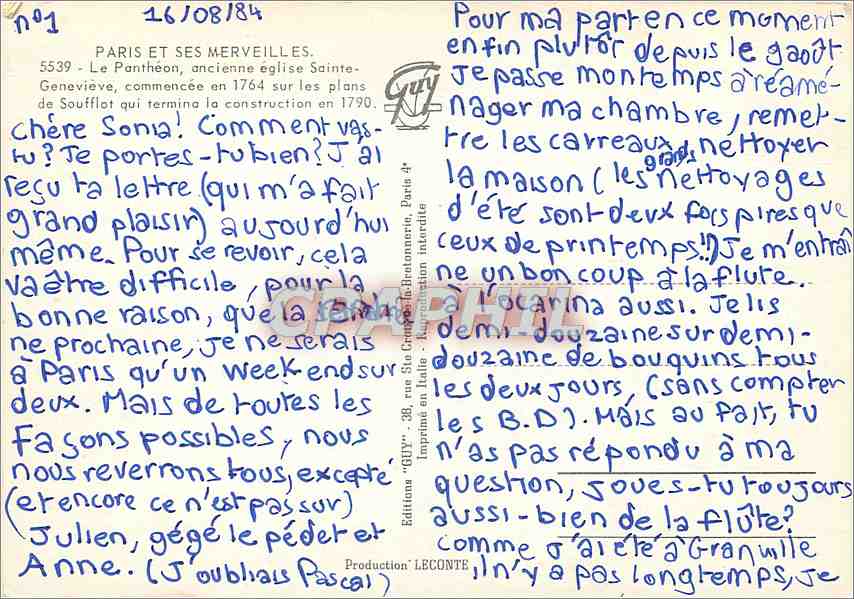 n°1 16/08/84
PARIS ET SES MERVEILLES.
5539 - Le Panthéon, ancienne église Sainte-
Geneviève, commencée en 1764 sur les plans
de Soufflot qui termina la construction en 1790.
Guy
chére Sonia! Comment vas-
tu? Te portes-tu bien? J'ai
reçu ta lettre (qui m'a fait
grand plaisir) aujourd'hui
même. Pour se revoir, cela
va être difficile, pour la
bonne raison, qu'e la
ne prochaine, je ne serais
à Paris qu'un week end sur
deux. Mais de toutes les
façons possibles, nous
nous reverrons tous, excepté
(et encore ce n'est pas sur)
Julien, gégé le pédet et
Anne. (J'oubliais Pascal)
Editions "GUY" - 38, rue Ste Croix-de-la-Bretonnerie, Paris 4e
Imprimé en Italie - Reproduction interdite
CPAPHIL
Production LECONTE
Pour ma part en ce moment
enfin plutôt depuis le 9 août
Je passe mon temps à réamé-
nager ma chambre, remet-
tre les carreaux, nettoyer
la maison (les grands nettoyages
d'été sont deux fois pires que
ceux de printemps!!) Je m'entraî
ne un bon coup à la flute.
à l'ocarina aussi. Je lis
demi-douzaine sur demi-
douzaine de bouquins tous
les deux jours, (sans compter
les B.D). Mais au fait, tu
n'as pas répondu à ma
question, joues-tu toujours
aussi-bien de la flûte?
comme j'ai été à Granville
il n'y a pas longtemps, je